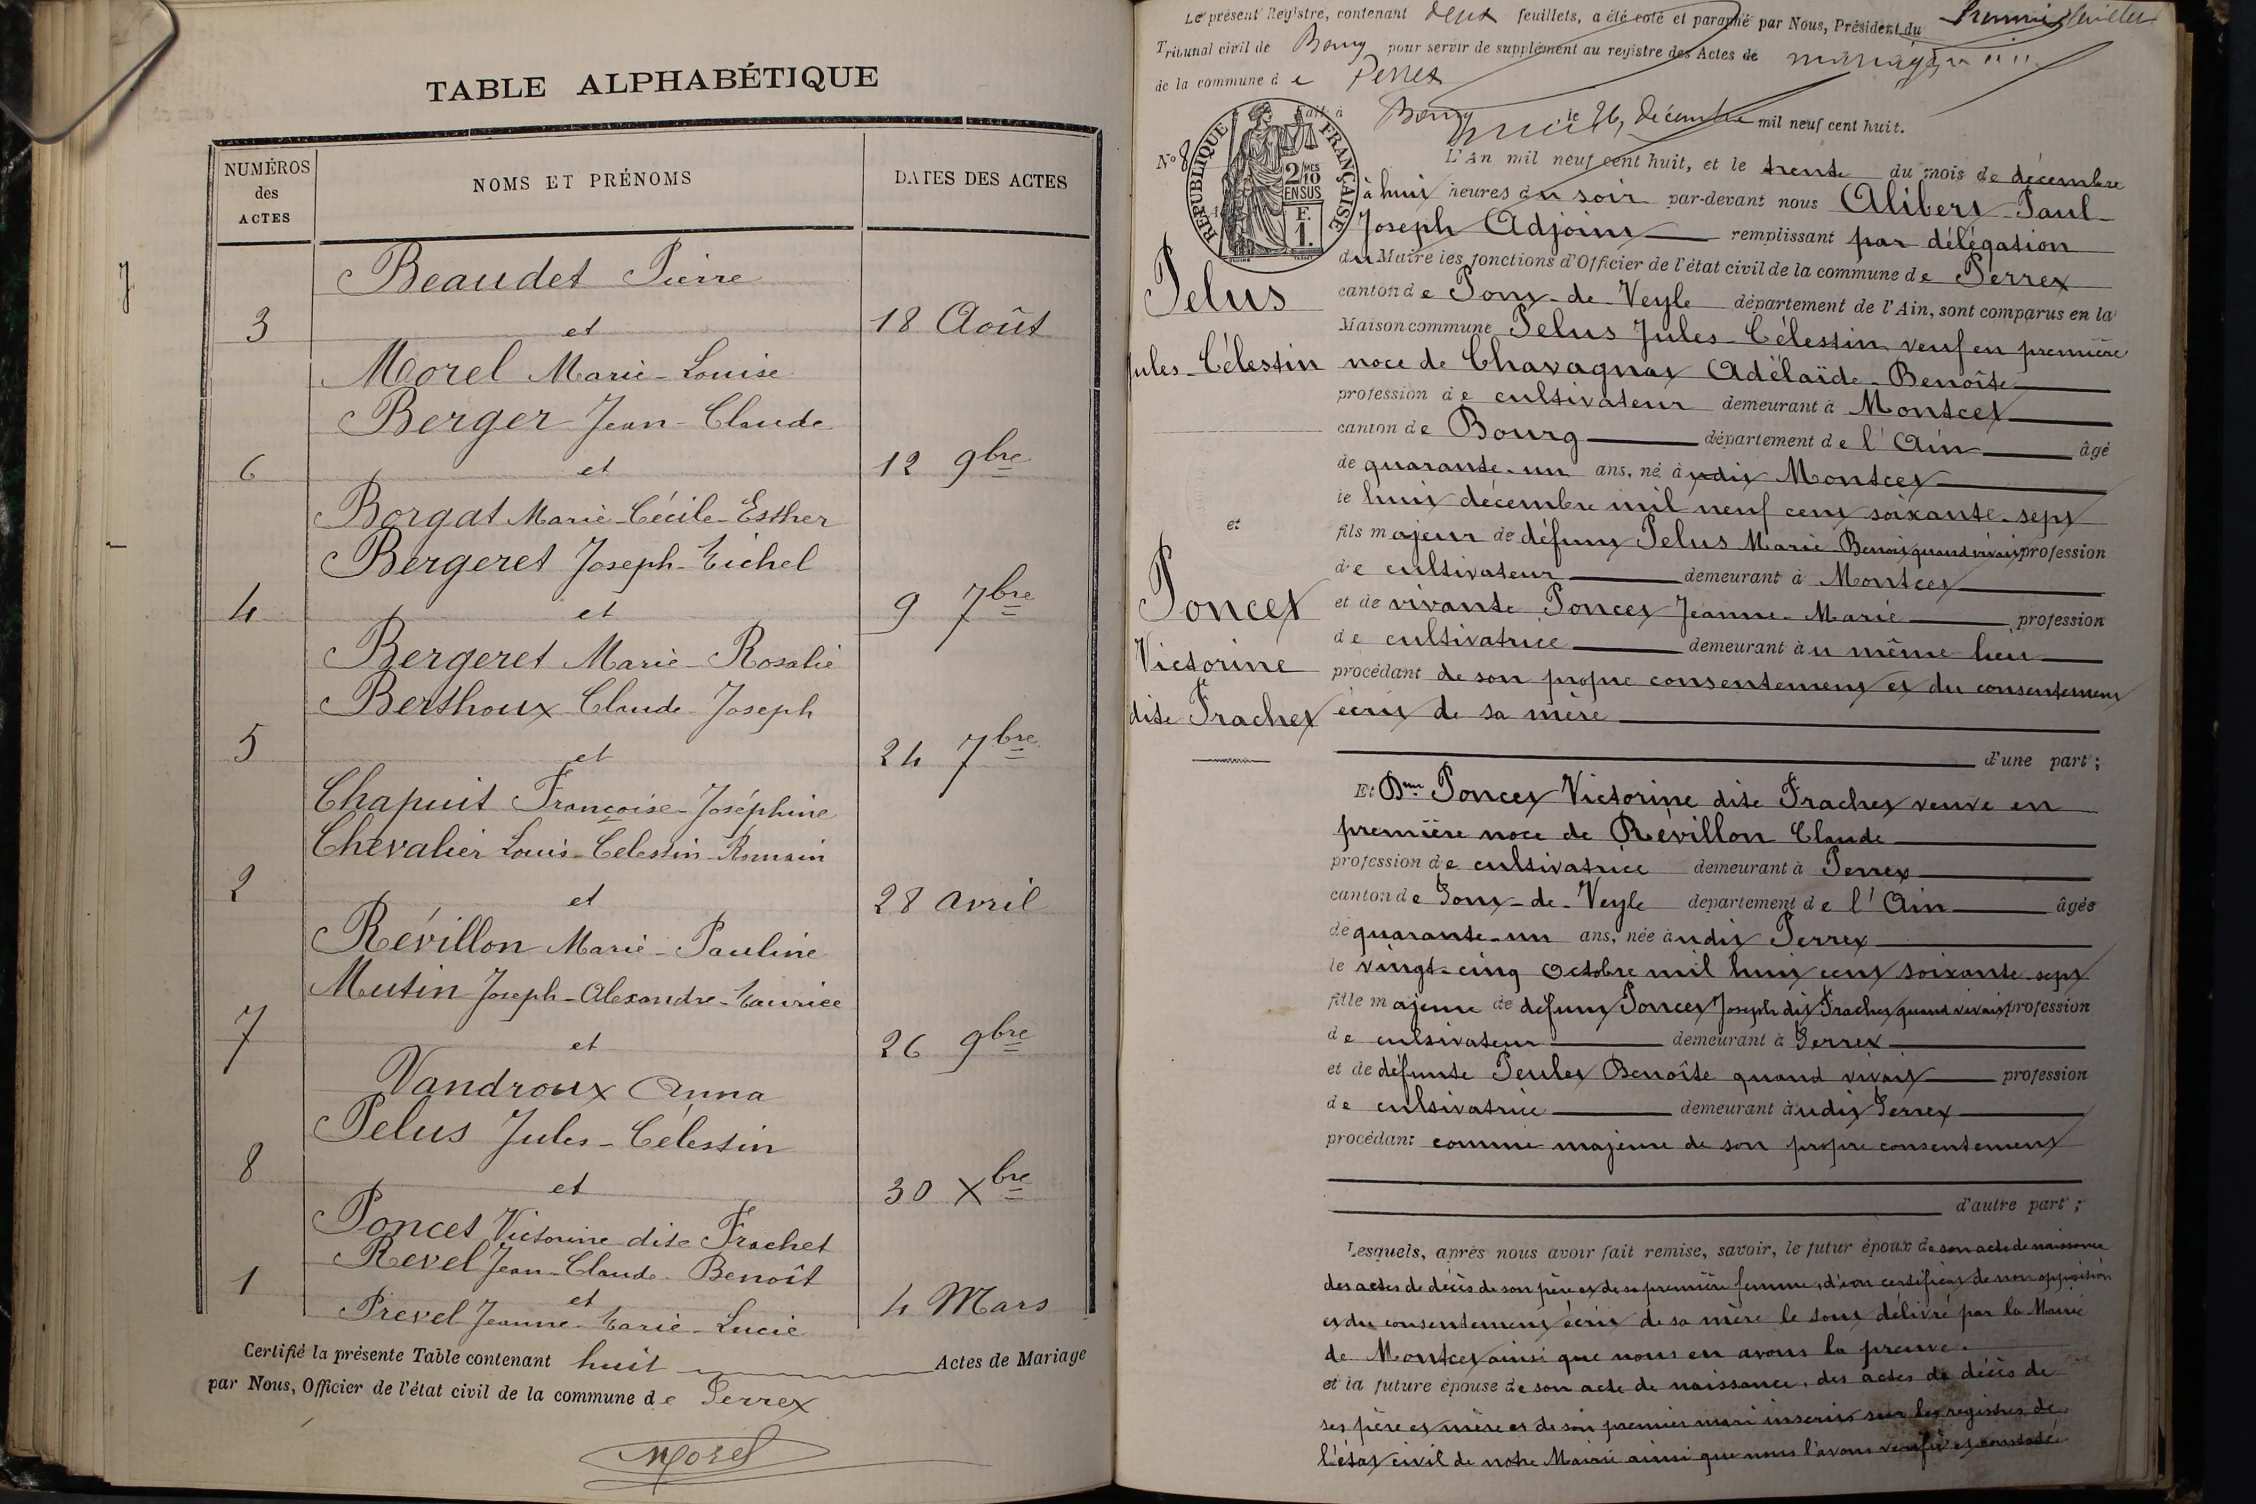 TABLE ALPHABÉTIQUE
NUMÉROS des ACTES
NOMS ET PRÉNOMS
DATES DES ACTES
Beaudet Pierre
3 et 18 Août
Morel Marie-Louise
Berger Jean-Claude
6 et 12 9bre
Borgat Marie-Cécile-Esther
Bergeret Joseph-Eichel
4 et 9 7bre
Bergeret Marie-Rosalie
Berthoux Claude Joseph
5 et 24 7bre
Chapuit Françoise-Joséphine
Chevalier Louis-Celestin-Romain
2 et 28 avril
Révillon Marie-Pauline
Mutin Joseph-Alexandre-Maurice
7 et 26 9bre
Vandroux Anna
Pelus Jules-Célestin
8 et 30 Xbre
Poncet Victorine dite Frachet
Revel Jean-Claude-Benoît
1 et 4 Mars
Prevel Jeanne-Marie-Lucie
Certifié la présente Table contenant huit Actes de Mariage
par Nous, Officier de l'état civil de la commune de Perrex
Morel
Le présent Registre, contenant deux feuillets, a été coté et paraphé par Nous, Président du
Premier feuillet
Tribunal civil de Bourg pour servir de supplément au registre des Actes de mariage
de la commune de Perrex
Fait à Bourg le 26 décembre mil neuf cent huit.
RÉPUBLIQUE FRANÇAISE
2/10 MES EN SUS
F. 1.
N° 8
Pelus
Jules-Célestin
et
Poncet
Victorine
dite Frachet
L'an mil neuf cent huit, et le trente du mois de décembre
à huit heures du soir par-devant nous Alibert Paul-
Joseph Adjoint remplissant par délégation
du Maire les fonctions d'Officier de l'état civil de la commune de Perrex
canton de Pont-de-Veyle département de l'Ain, sont comparus en la
Maison commune Pelus Jules-Célestin veuf en première
noce de Chavagnat Adélaïde-Benoîte
profession de cultivateur demeurant à Montcet
canton de Bourg département de l'Ain âgé
de quarante-un ans, né à udit Montcet
le huit décembre mil neuf cent soixante-sept
fils majeur de défunt Pelus Marie Benoit quand vivait profession
de cultivateur demeurant à Montcet
et de vivante Poncet Jeanne-Marie profession
de cultivatrice demeurant au même lieu
procédant de son propre consentement et du consentement
écrit de sa mère
d'une part;
Et Dme Poncet Victorine dite Frachet veuve en
première noce de Révillon Claude
profession de cultivatrice demeurant à Perrex
canton de Pont-de-Veyle département de l'Ain âgée
de quarante-un ans, née audit Perrex
le vingt-cinq Octobre mil huit cent soixante-sept
fille majeure de défunt Poncet Joseph dit Frachet quand vivait profession
de cultivateur demeurant à Perrex
et de défunte Peulet Benoîte quand vivait profession
de cultivatrice demeurant audit Perrex
procédant comme majeure de son propre consentement
d'autre part;
Lesquels, après nous avoir fait remise, savoir, le futur époux de son acte de naissance
des actes de décès de son père et de sa première femme, d'un certificat de non opposition
et du consentement écrit de sa mère le tout délivré par la Mairie
de Montcet ainsi que nous en avons la preuve.
et la future épouse de son acte de naissance, des actes de décès de
ses père et mère et de son premier mari inscrits sur les registres de
l'état civil de notre Mairie ainsi que nous l'avons vérifié et constaté